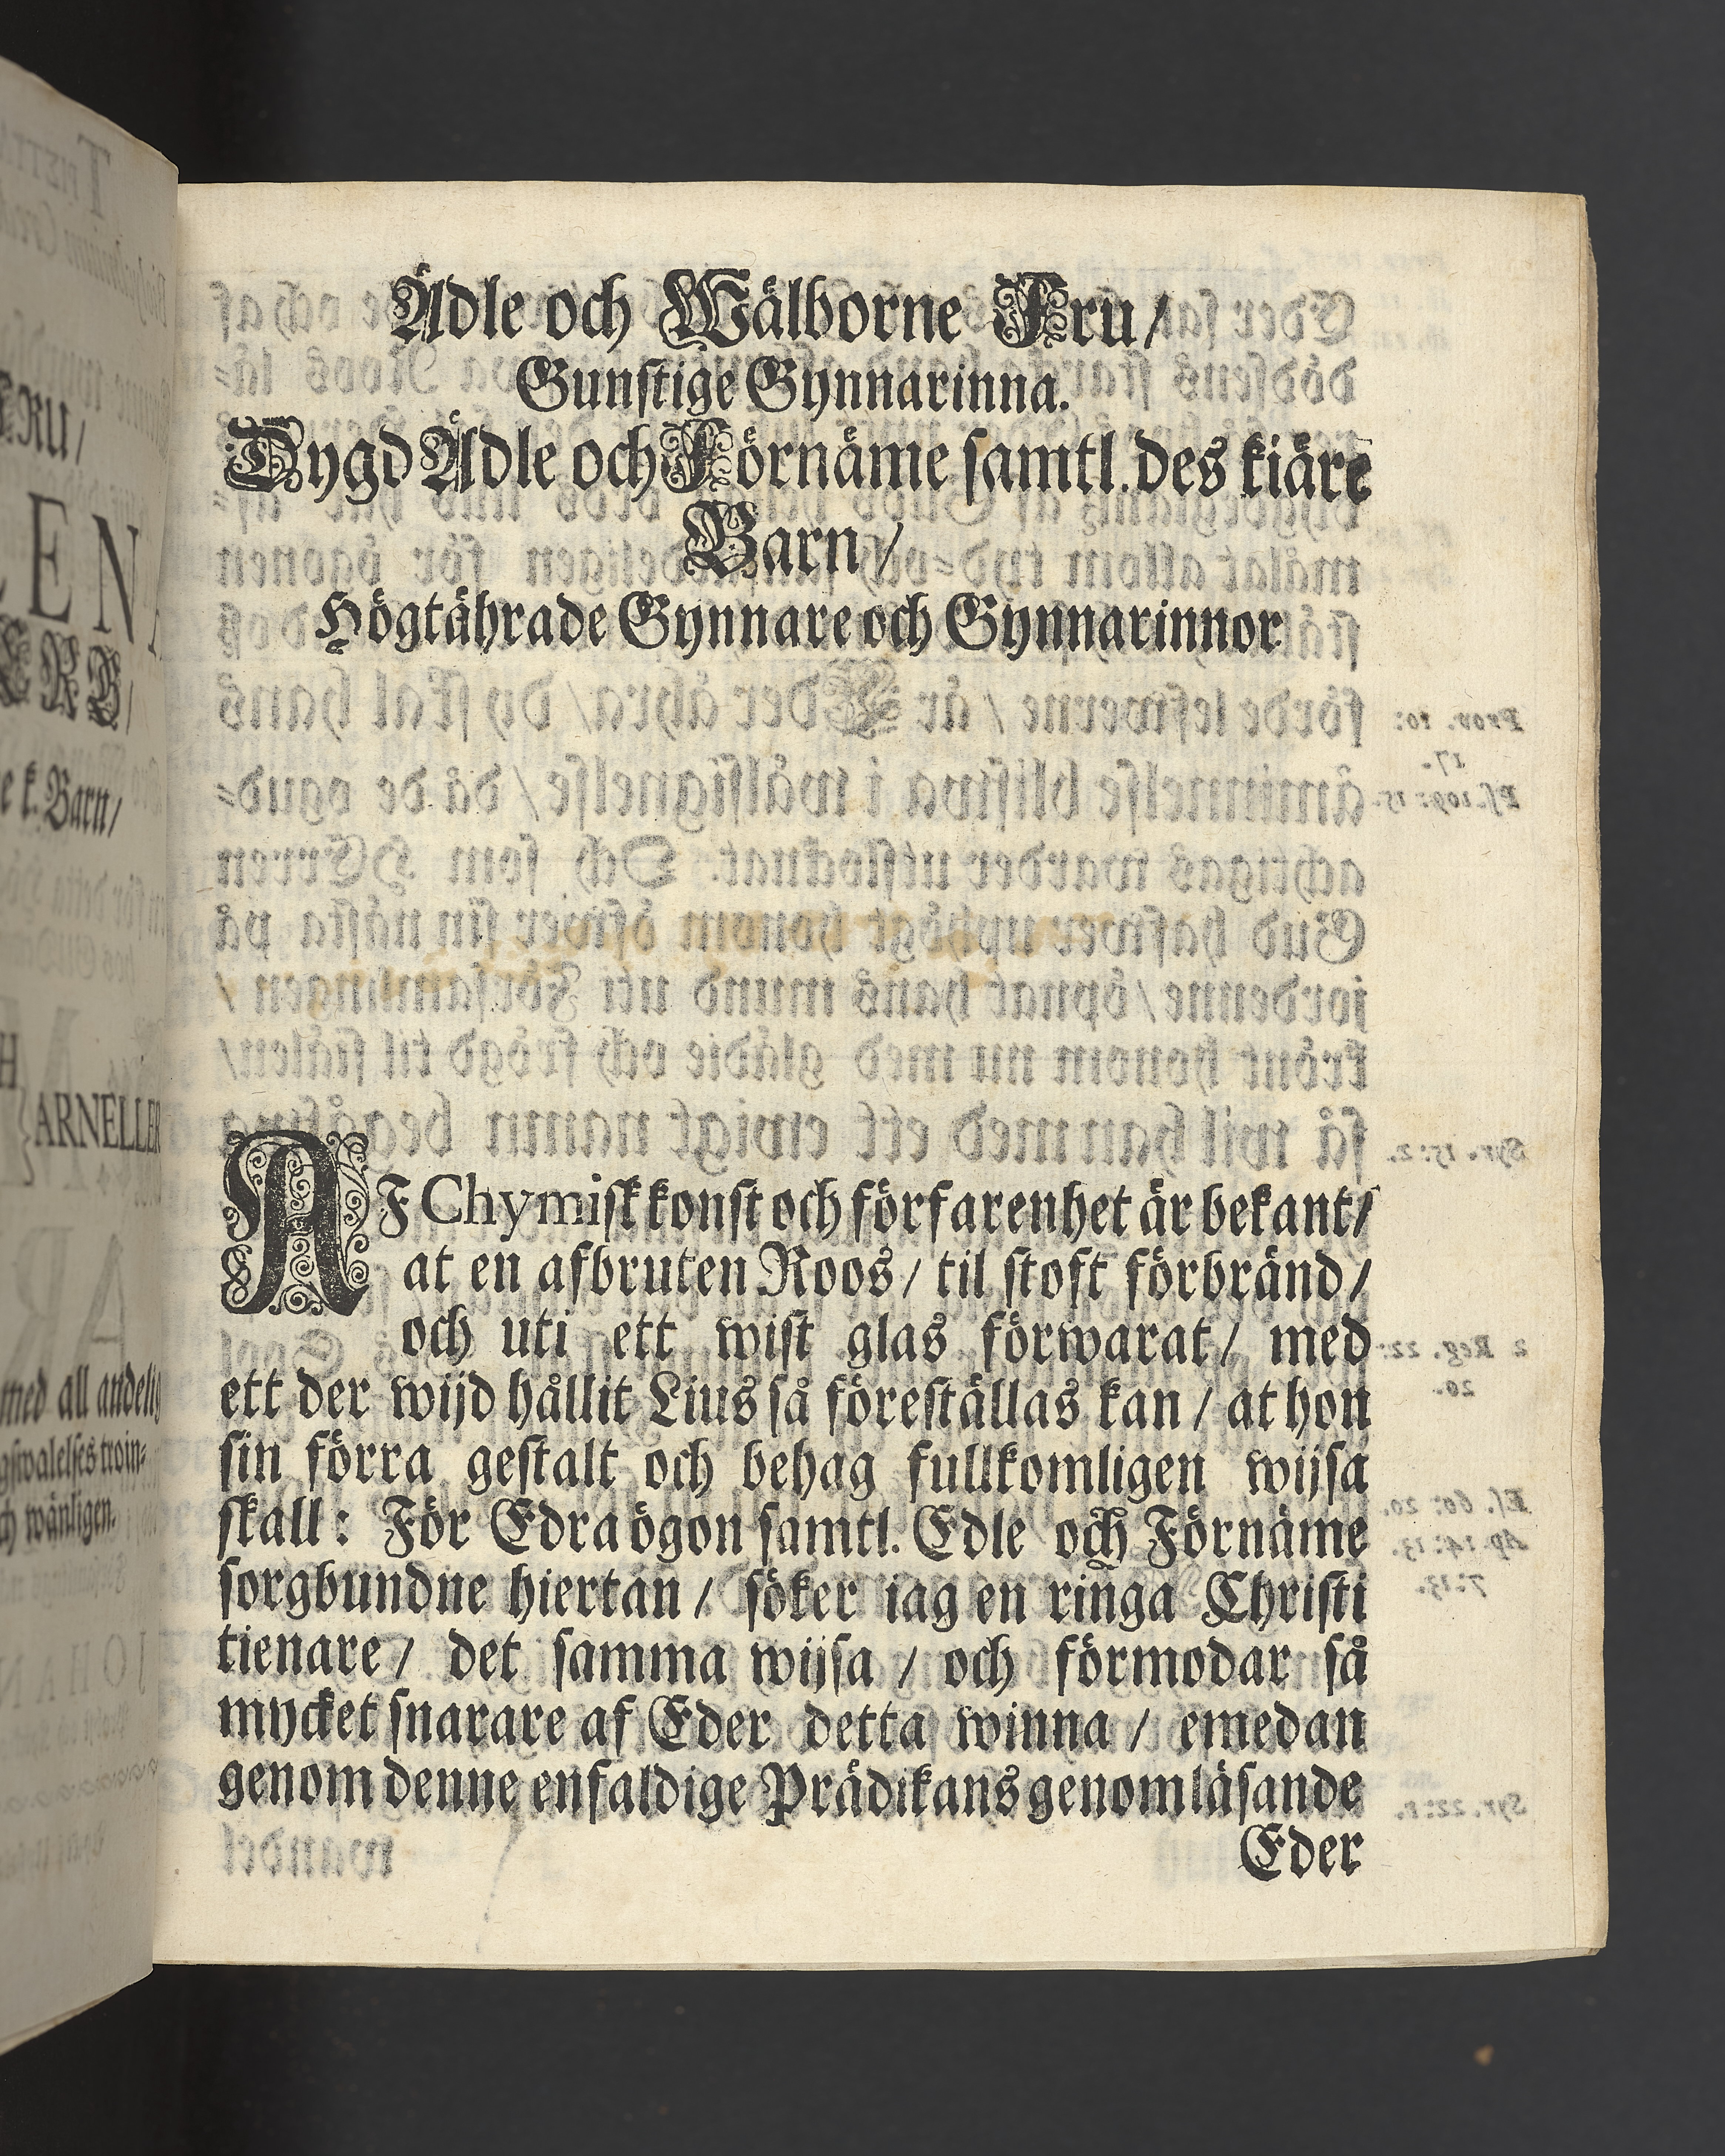 Ädle och Wälborne Fru/
Gunstige Gynnarinna.
Dygd Ädle och Förnäme samtl. des kiäre
Barn/
Högtährade Gynnare och Gynnarinnor
AF Chymisk konst och förfarenhet är bekant/
at en afbruten Roos/ til stoft förbränd/
och uti ett wist glas förwarat/ med
ett der wijd hållit Lius så föreställas kan/ at hon
sin förra gestalt och behag fullkomligen wijsa
skall: För Edra ögon samtl. Edle och Förnäme
sorgbundne hiertan/ söker iag en ringa Christi
tienare/ det samma wijsa/ och förmodar så
mycket snarare af Eder detta winna/ emedan
genom denne enfaldige Prädikans genomläsande
Eder
RU/
EN
e k. Barn/
H
ARNELLER
med all andelig
ch wänligen.